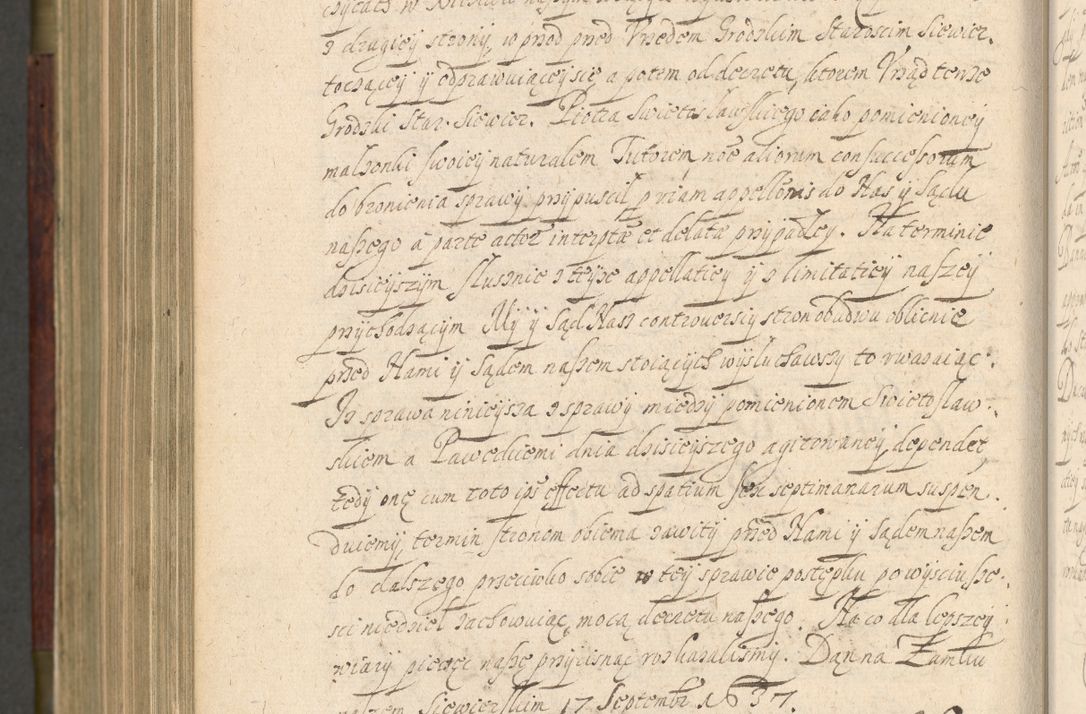 z drugiey strony, w przod przed Vrzedem Grodzkim Staroscim Siewier.
tocząceÿ ÿ odprawuiąceÿ się a potem od decretu, ktorem Vrząd tenże
Grodzki Star. Siewier. Piotra Swietoslawskiego iako pomienioneÿ
małżonki swoieÿ naturalem Tutorem noe aliorum consuccessorum
do bronienia sprawÿ przÿpuscił p viam appellonis do Nas ÿ Sądu
naszego à parte actor interptæ et delatæ przÿpadłeÿ. Na terminie
dzisieÿszÿm słusznie z teÿże appellatieÿ ÿ z limitatieÿ naszeÿ
przÿchodzącÿm Mÿ ÿ Sąd Nasz controuersiÿ stron obudwu oblicznie
przed Nami ÿ Sądem naszem stoiącÿch wÿsłuchawszÿ to vważaiąc.
Iż sprawa ninieÿsza z sprawÿ miedzÿ pomienionem Swietoslaw.
skiem a Pawedckiemi dnia dzisieÿszego agitowaneÿ, dependet,
tedÿ onę cum toto ipō effectu ad spatium sex septimanarum suspen.
duiemÿ, termin stronom obiema zawitÿ przed Nami ÿ Sądem naszem
do dalszego przeciwko sobie w teÿ sprawie postępku po wÿsciu sze.
sci niedziel zachowuiąc, mocą decretu naszego. Na co dla lepszeÿ
wiarÿ pieczęc naszę przÿcisnąc roskazalismÿ. Dan na Zamku
naszem Siewierskim 17 Septembr 1637.